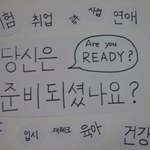 시험 취업 창업 연애
당신은
Are you
READY?
준비되셨나요?
입시 재테크 육아 건강